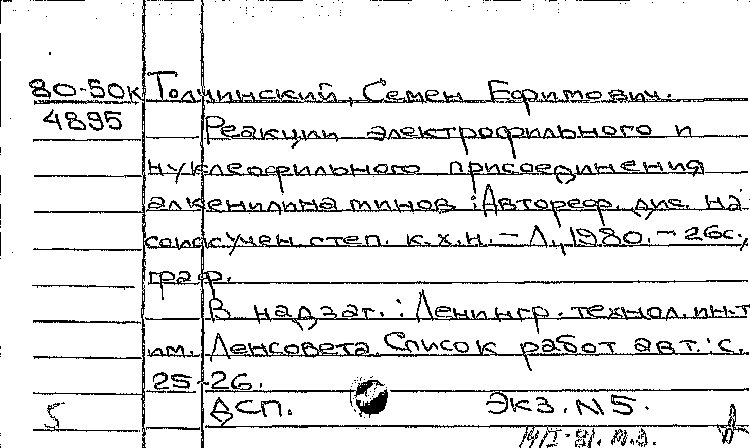 80-50к Толчинский, Семен Ефимович.
4895 Реакции электрофильного и
нуклеофильного присоединения
алкенилинаминов : Автореф. дис. на
соиск. учен. степ. к.х.н. – Л., 1980. – 26с.,
граф.
В надзаг. : Ленингр. технол. ин-т
им. Ленсовета. Список работ авт. : с.
25-26.
5 ДСП. Экз. N5.